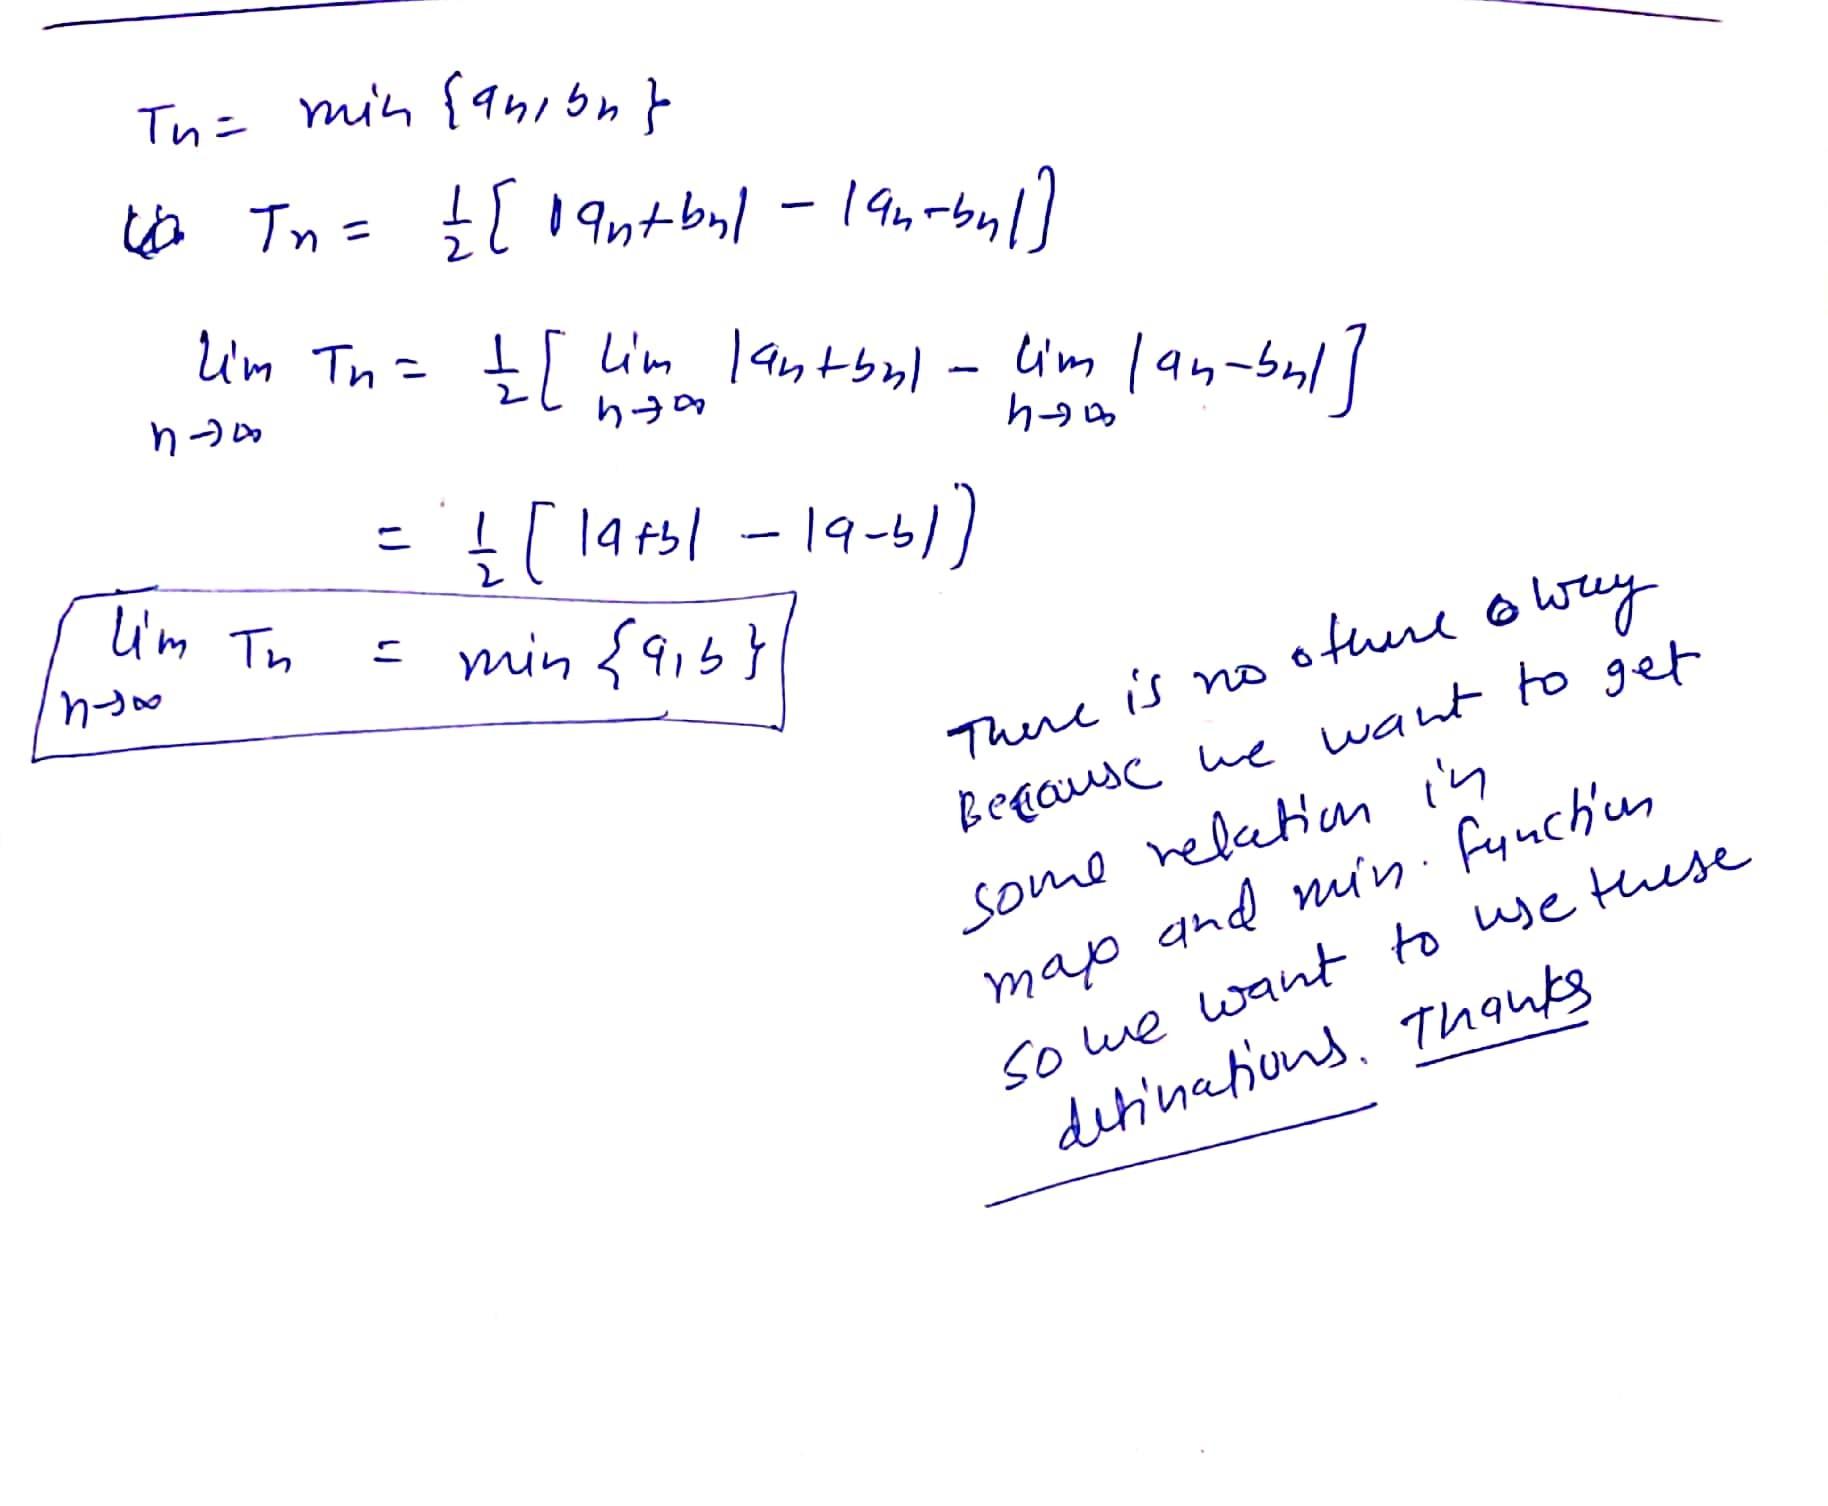 Tn = min {an, bn}
Tn = 1/2 [ |an+bn| - |an-bn| ]
lim n→∞ Tn = 1/2 [ lim n→∞ |an+bn| - lim n→∞ |an-bn| ]
= 1/2 [ |a+b| - |a-b| ]
lim n→∞ Tn = min {a, b}
There is no othere way
Because we want to get
some relation in
map and min. function
so we want to use these
definations. Thanks